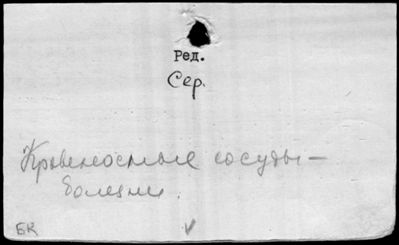 Ред.
Сер.
Кровеносные сосуды –
болезни.
БК